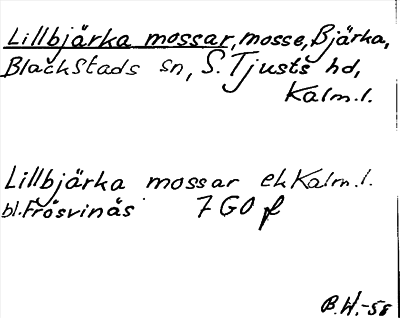 Lillbjärka mossar, mosse, Bjärka,
Blackstads sn, S. Tjusts hd,
Kalm.l.
Lillbjärka mossar ek Kalm.l.
bl. Frösvinäs 7 G0 f
B.W.-58